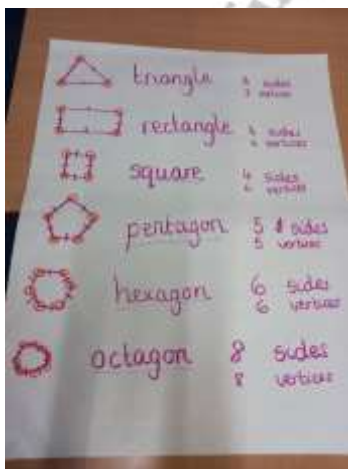 triangle 3 sides
3 vertices
rectangle 4 sides
4 vertices
square 4 sides
4 vertices
pentagon 5 sides
5 vertices
hexagon 6 sides
6 vertices
octagon 8 sides
8 vertices